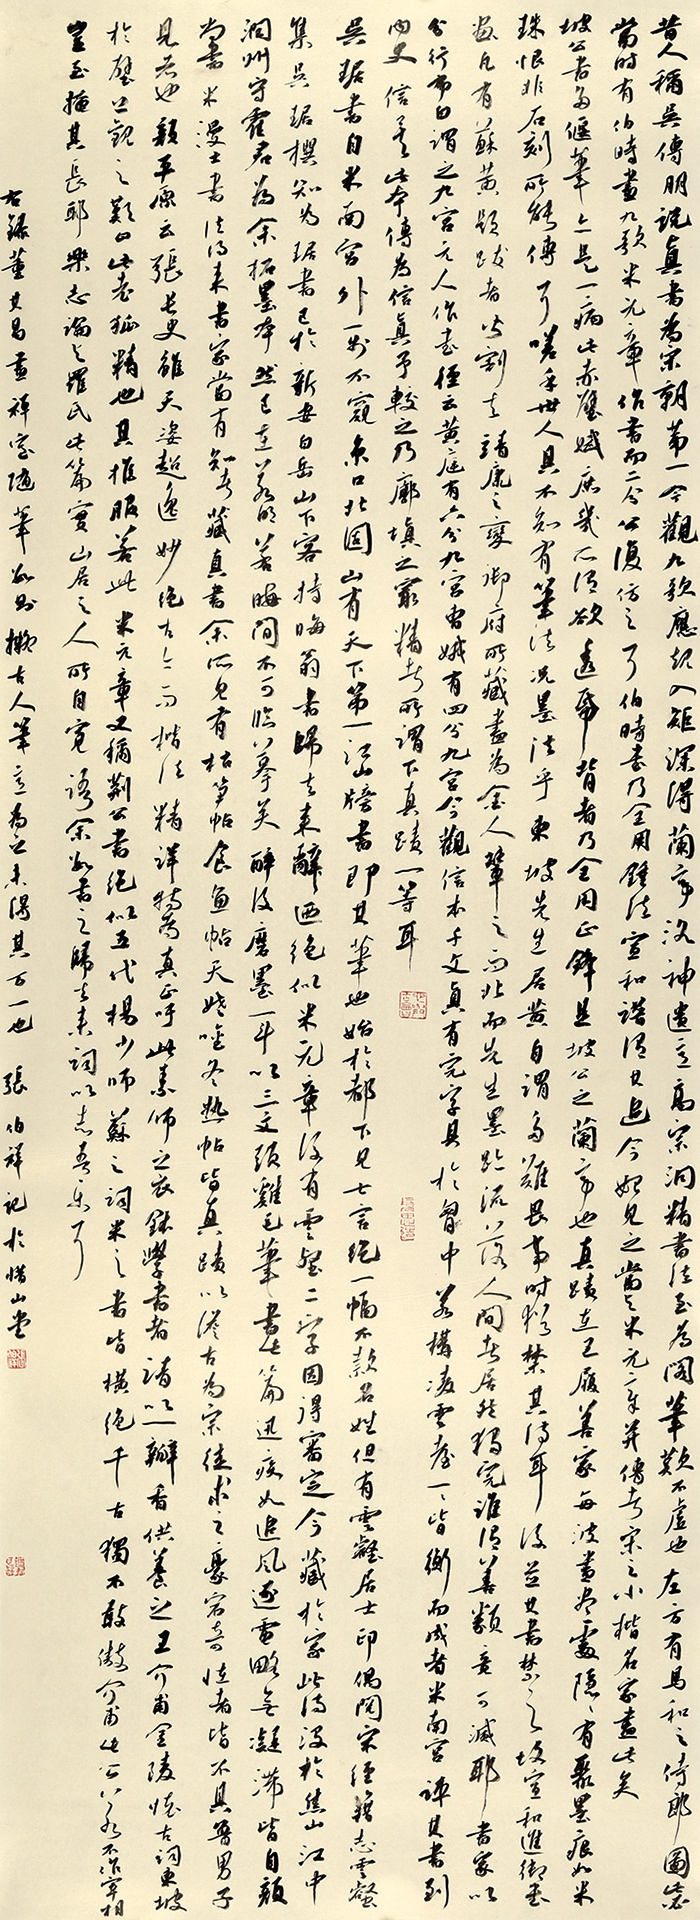 昔人稱吳傅朋說真書為宋朝第一今觀九歌應規入矩深得蘭亭洛神遺意高宗洞精書法至為閣筆歎不虛也左方有馬和之侍郎圖蓋
當時有伯時畫九歌米元章作書而二公復仿之耳伯時書乃全用鍾法宣和譜謂其追今始見之當與米元章並傳者宋之小楷名家盡此矣
坡公書多偃筆亦是一病此赤壁賦庶幾所謂欲透紙背者乃全用正鋒是坡公之蘭亭也真蹟在王履善家每波畫盡處隱隱有聚墨痕如黍米
珠恨非石刻所能傳耳嗟乎世人且不知有筆法況墨法乎東坡先生居黃自謂多難畏事時猶禁其詩耳後並其書禁之故宣和進御書
畫凡有蘇黃題跋者皆割去靖康之變御府所藏盡為金人輦之而北而先生墨跡流落人間者居然獨完誰謂善類竟可滅耶書家以
分行布白謂之九宮元人作書經云黃庭有六分九宮曹娥有四分九宮今觀信本千文真有完字具於胸中若構凌雲臺一一皆衡而成者米南宮評其書到
內史信矣此本傳為信真予較之乃廓填之最精者所謂下真蹟一等耳
吳琚書自米南宮外一步不窺京口北固山有天下第一江山牓書即其筆也始於都下見七言絕一幅不款名姓但有雲壑居士印偶閱宋經籍志雲壑
集吳琚撰知為琚書已於新安白岳山下客持晦翁書歸去來辭迺絕似米元章後有雲壑二字因得審定今藏於家此詩沒於焦山江中
潤州守霍君為余拓墨本然已在若明若晦間不可臨摹矣醉後磨墨一斗以三文頭雞毛筆書此篇迅疾如追風逐電略無凝滯皆自顏
尚書米漫士書法得來書家當有知者藏真書余所見有枯筍帖食魚帖天姥吟冬熱帖皆真蹟以澹古為宗徒求之豪宕奇怪者皆不具魯男子
見者也顏平原云張長史雖天姿超逸妙絕古今而楷法精詳特為真正吁此素師之衣缽學書者請以一瓣香供養之王介甫金陵懷古詞東坡
於壁上觀之歎曰此老狐精也其推服若此米元章又稱荊公書絕似五代楊少師蘇之詞米之書皆橫絕千古獨不敢傲介甫此公若不作宰相
豈至掩其長耶樂志論與羅氏此篇實山居之人所自寬語余故書之歸去來詞以志吾樂耳
右錄董其昌畫禪室隨筆數則擬古人筆意為之未得其萬一也 張伯祥記於惜山堂